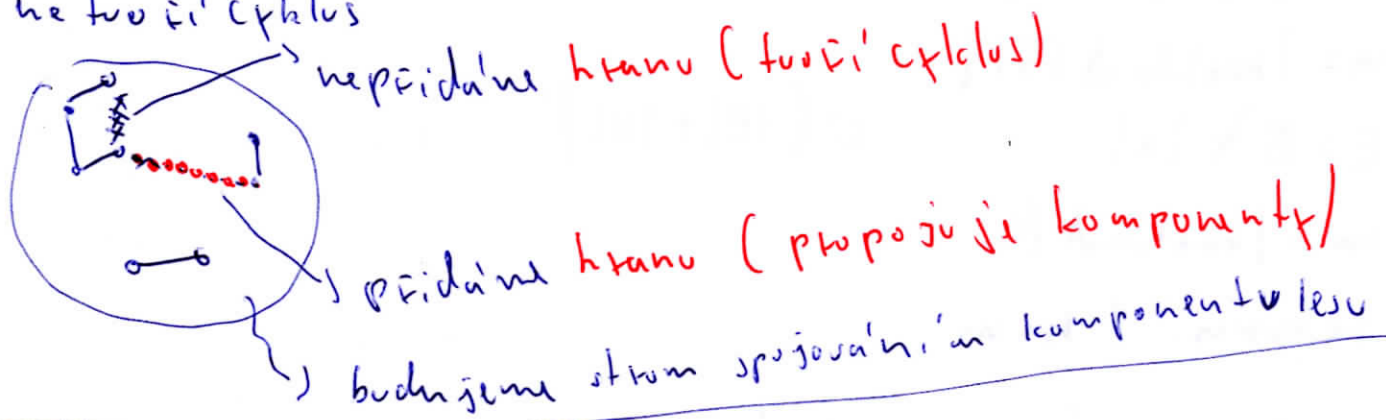 netvoří cyklus
nepřidáme hranu (tvoří cyklus)
přidáme hranu (propojuje komponenty)
budujeme strom spojováním komponentů lesu